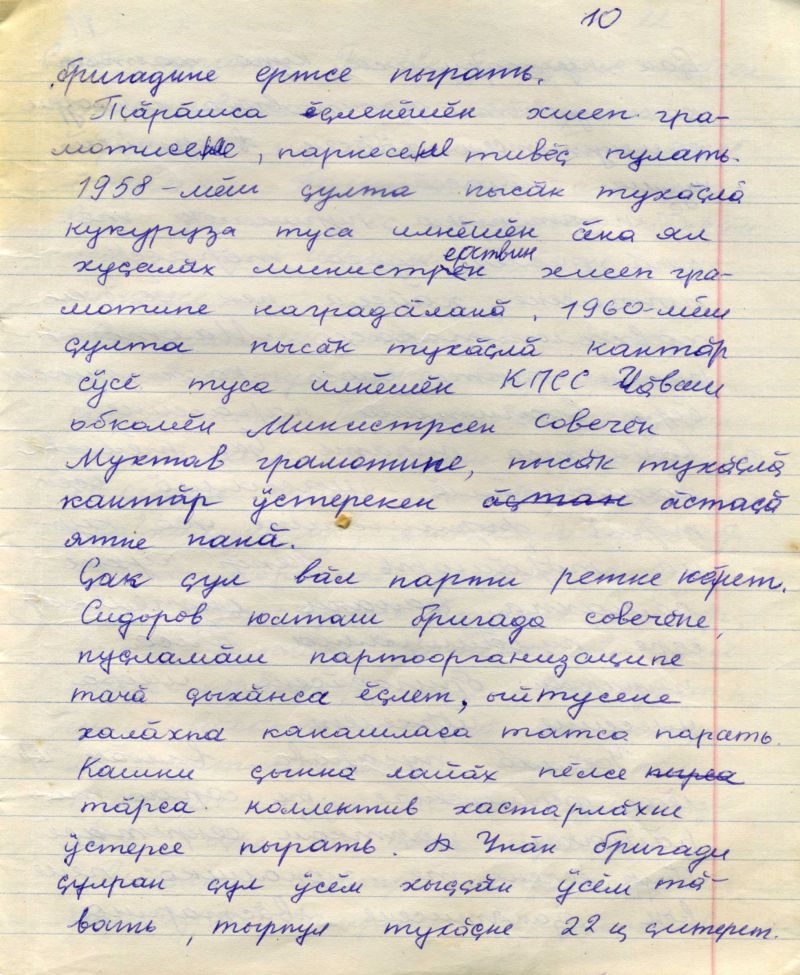 10
бригадине ертсе пырать.
Тӑрӑшса ӗҫленӗшӗн хисеп гра-
мотисене, парнесене тивӗҫ пулать.
1958-мӗш ҫулта пысӑк тухӑҫлӑ
кукуруза туса илнӗшӗн ӑна ял
хуҫалӑх министерствин хисеп гра-
мотипе наградӑланӑ, 1960-мӗш
ҫулта пысӑк тухӑҫлӑ кантӑр
сӳсӗ туса илнӗшӗн КПСС Чӑваш
обкомӗн Министрсен Совечӗн
Мухтав грамотипе, пысӑк тухӑҫлӑ
кантӑр ӳстерекен ӑстаҫӑ
ятне панӑ.
Ҫак ҫул вӑл парти ретне кӗрет.
Сидоров юлташ бригада совечӗпе,
пуҫламӑш партоорганизаципе
тачӑ ҫыхӑнса ӗҫлет, ыйтусене
халӑхпа канашласа татса парать.
Кашни ҫынна лайӑх пӗлсе
тӑрса коллектив хастарлӑхне
ӳстерсе пырать. Упан бригади
ҫулран ҫул ӳсӗм хыҫҫӑн ӳсӗм тӑ-
вать, тырпул тухӑҫне 22 ц ҫитерет.